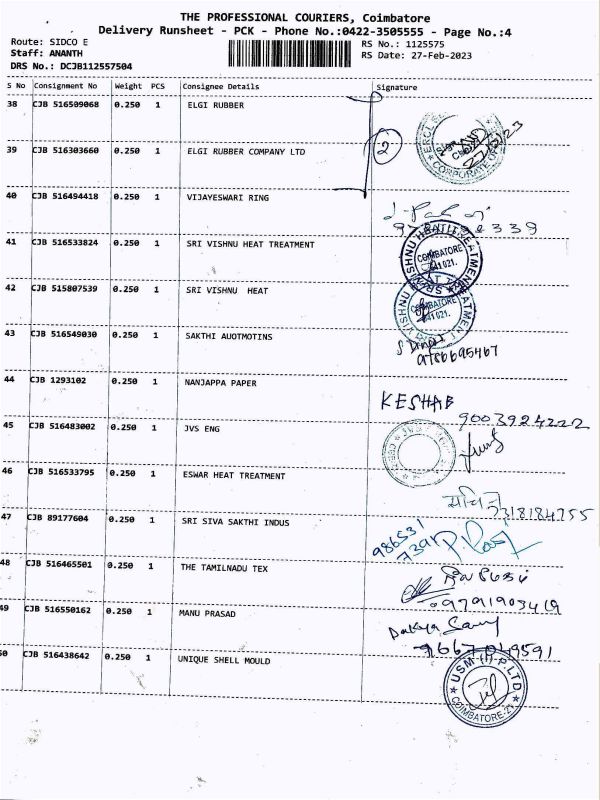 THE PROFESSIONAL COURIERS, Coimbatore
Delivery Runsheet - PCK - Phone No.:0422-3505555 - Page No.:4
Route: SIDCO E
Staff: ANANTH
DRS No.: DCJB112557504
RS No.: 1125575
RS Date: 27-Feb-2023
S No Consignment No Weight PCS Consignee Details Signature
38 CJB 516509068 0.250 1 ELGI RUBBER
2
CORPORATE
39 CJB 516303660 0.250 1 ELGI RUBBER COMPANY LTD
40 CJB 516494418 0.250 1 VIJAYESWARI RING
41 CJB 516533824 0.250 1 SRI VISHNU HEAT TREATMENT
SRI VISHNU HEAT TREATMENT
COIMBATORE
641 021.
42 CJB 515807539 0.250 1 SRI VISHNU HEAT
COIMBATORE
641 021.
43 CJB 516549030 0.250 1 SAKTHI AUOTMOTINS
44 CJB 1293102 0.250 1 NANJAPPA PAPER
KESHAB
9003924222
45 CJB 516483002 0.250 1 JVS ENG
46 CJB 516533795 0.250 1 ESWAR HEAT TREATMENT
7318184755
47 CJB 89177604 0.250 1 SRI SIVA SAKTHI INDUS
986531
48 CJB 516465501 0.250 1 THE TAMILNADU TEX
09791903419
49 CJB 516550162 0.250 1 MANU PRASAD
50 CJB 516438642 0.250 1 UNIQUE SHELL MOULD
USM (I) P.LTD
COIMBATORE-21